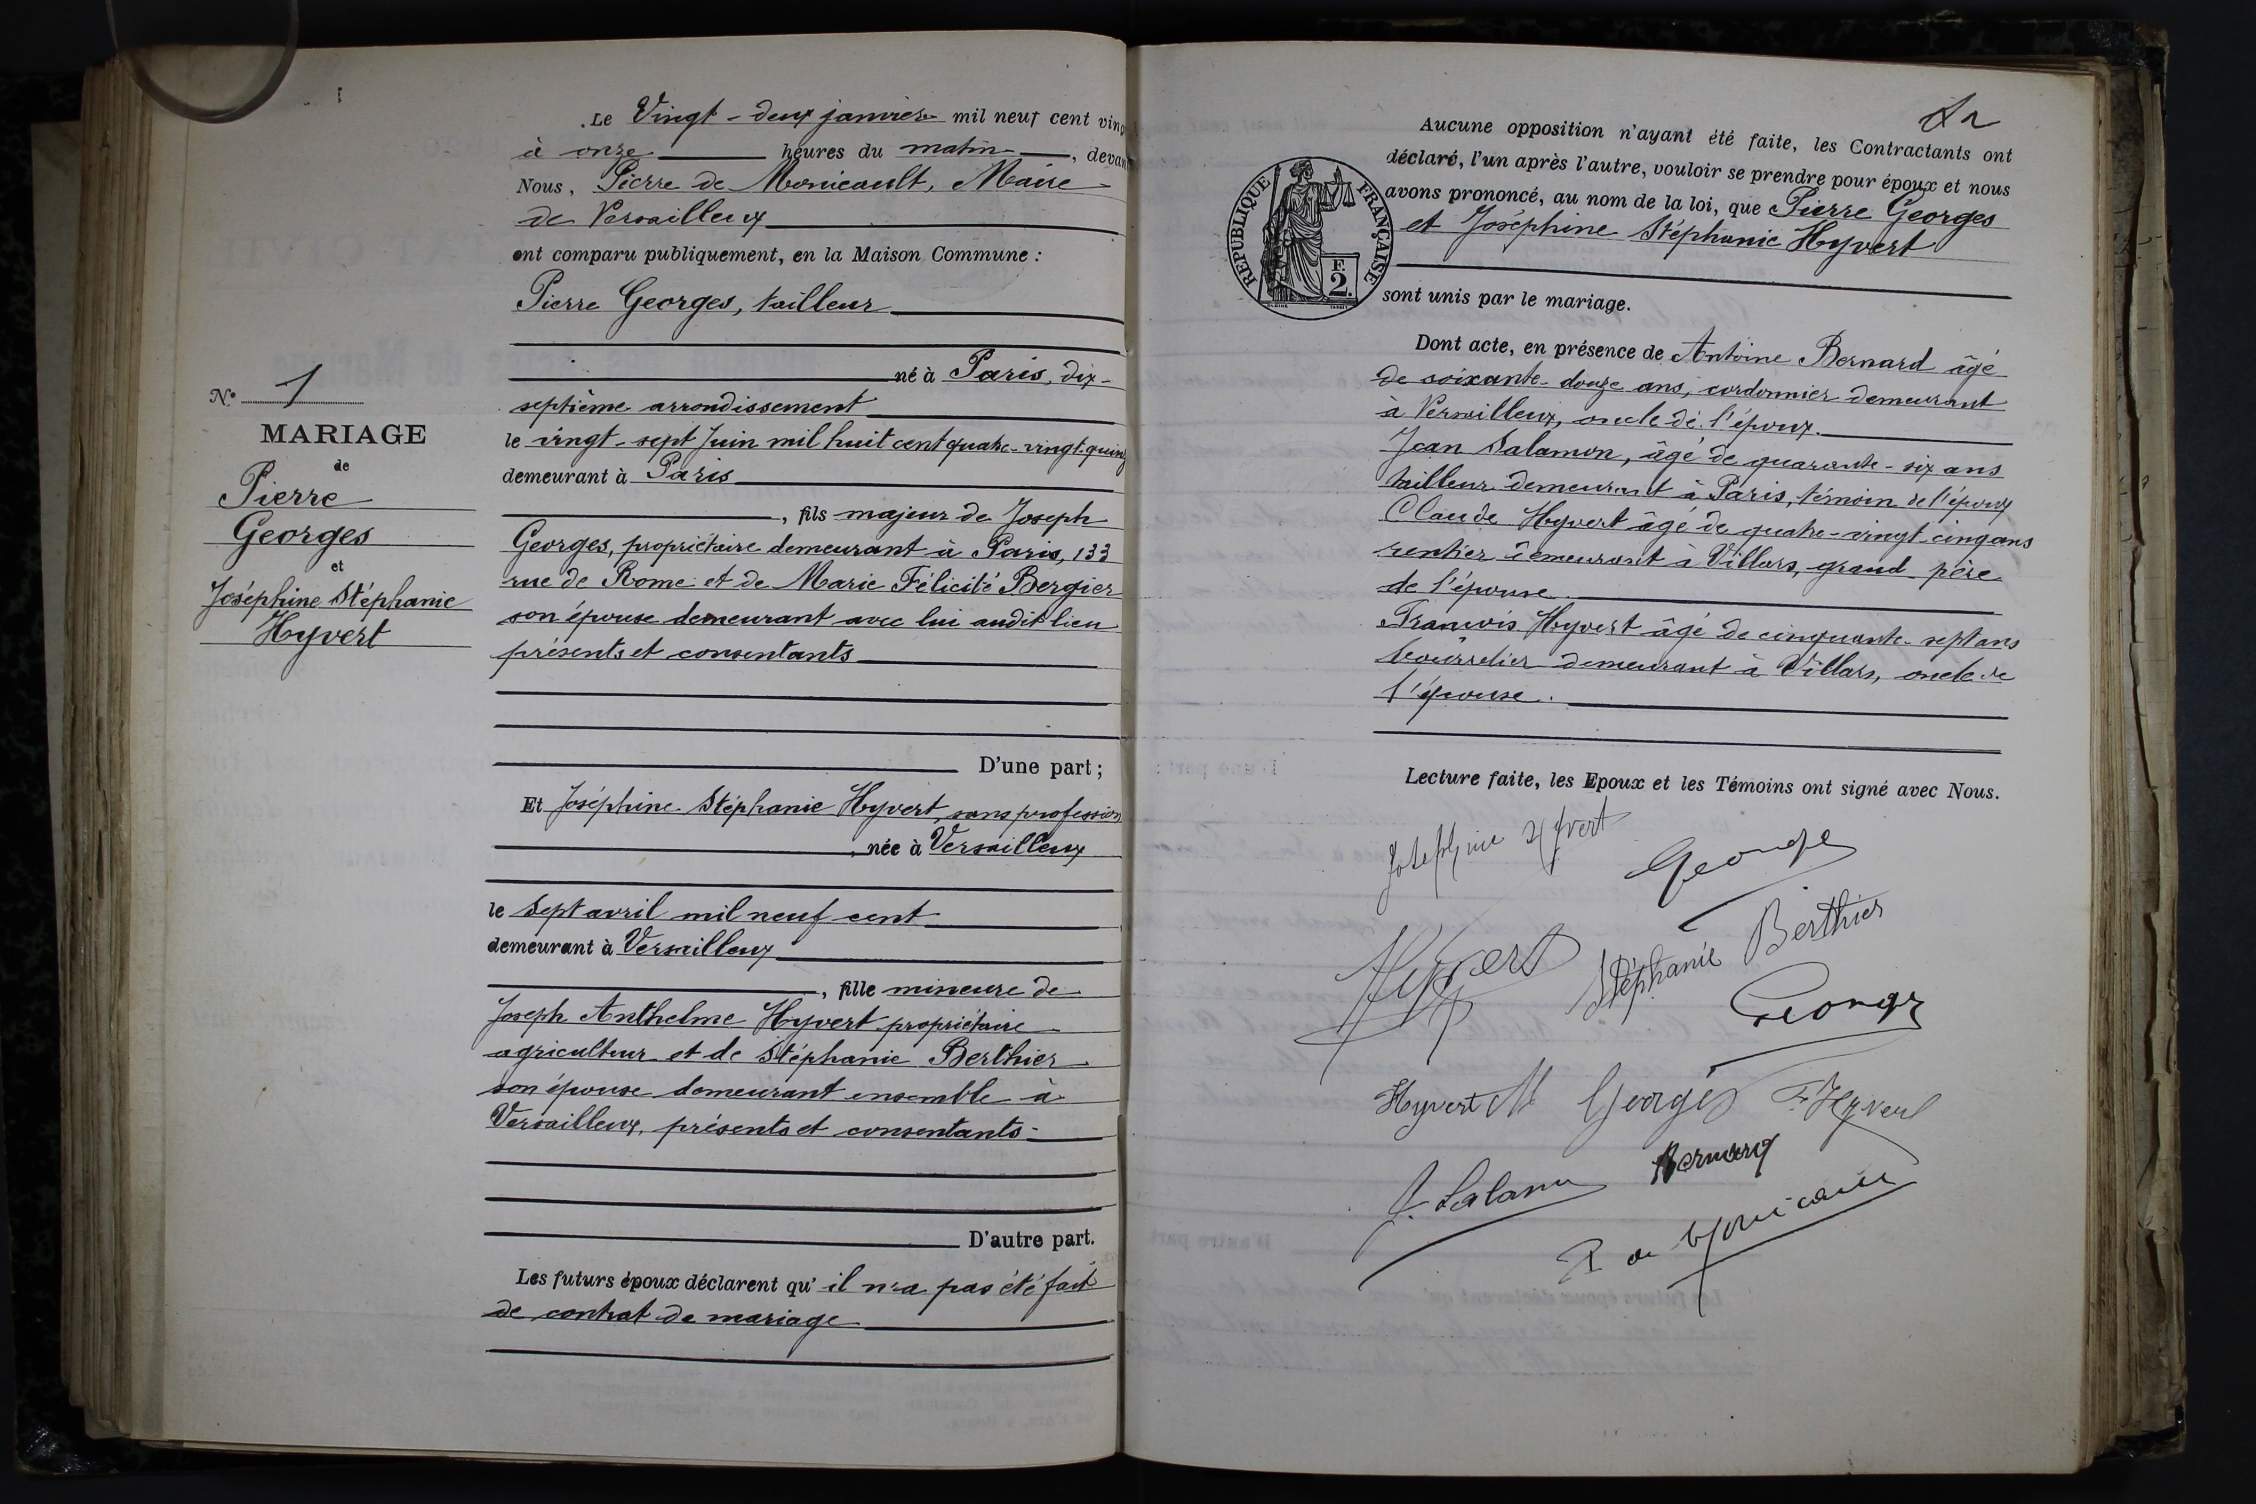 Le Vingt-deux janvier mil neuf cent ving
à onze heures du matin, devan
Nous, Pierre de Monicault, Maire
de Versailleux
ont comparu publiquement, en la Maison Commune :
Pierre Georges, tailleur
né à Paris, dix-
septième arrondissement
le vingt-sept Juin mil huit cent quatre-vingt-quinz
demeurant à Paris
, fils majeur de Joseph
Georges, propriétaire demeurant à Paris, 133
rue de Rome et de Marie Félicité Bergier
son épouse demeurant avec lui audit lieu
présents et consentants
D'une part ;
Et Joséphine Stéphanie Hyvert, sans profession
, née à Versailleux
le sept avril mil neuf cent
demeurant à Versailleux
, fille mineure de
Joseph Anthelme Hyvert propriétaire
agriculteur et de Stéphanie Berthier
son épouse demeurant ensemble à
Versailleux, présents et consentants
D'autre part.
Les futurs époux déclarent qu'il n'a pas été fait
de contrat de mariage
N° 1
MARIAGE
de
Pierre
Georges
et
Joséphine Stéphanie
Hyvert
Aucune opposition n'ayant été faite, les Contractants ont
déclaré, l'un après l'autre, vouloir se prendre pour époux et nous
avons prononcé, au nom de la loi, que Pierre Georges
et Joséphine Stéphanie Hyvert
sont unis par le mariage.
RÉPUBLIQUE FRANÇAISE
F.
2.
Dont acte, en présence de Antoine Bernard âgé
de soixante-douze ans, cordonnier demeurant
à Versailleux, oncle de l'époux.
Jean Salamon, âgé de quarante-six ans
tailleur demeurant à Paris, témoin de l'époux
Claude Hyvert âgé de quatre-vingt-cinq ans
rentier demeurant à Villars, grand père
de l'épouse.
François Hyvert âgé de cinquante-sept ans
bourrelier demeurant à Villars, oncle de
l'épouse.
Lecture faite, les Epoux et les Témoins ont signé avec Nous.
Joséphine Hyvert
George
Hyvert
Stéphanie Berthier
George
Hyvert M Georges F. Hyvert
Bernard
P de Monicault